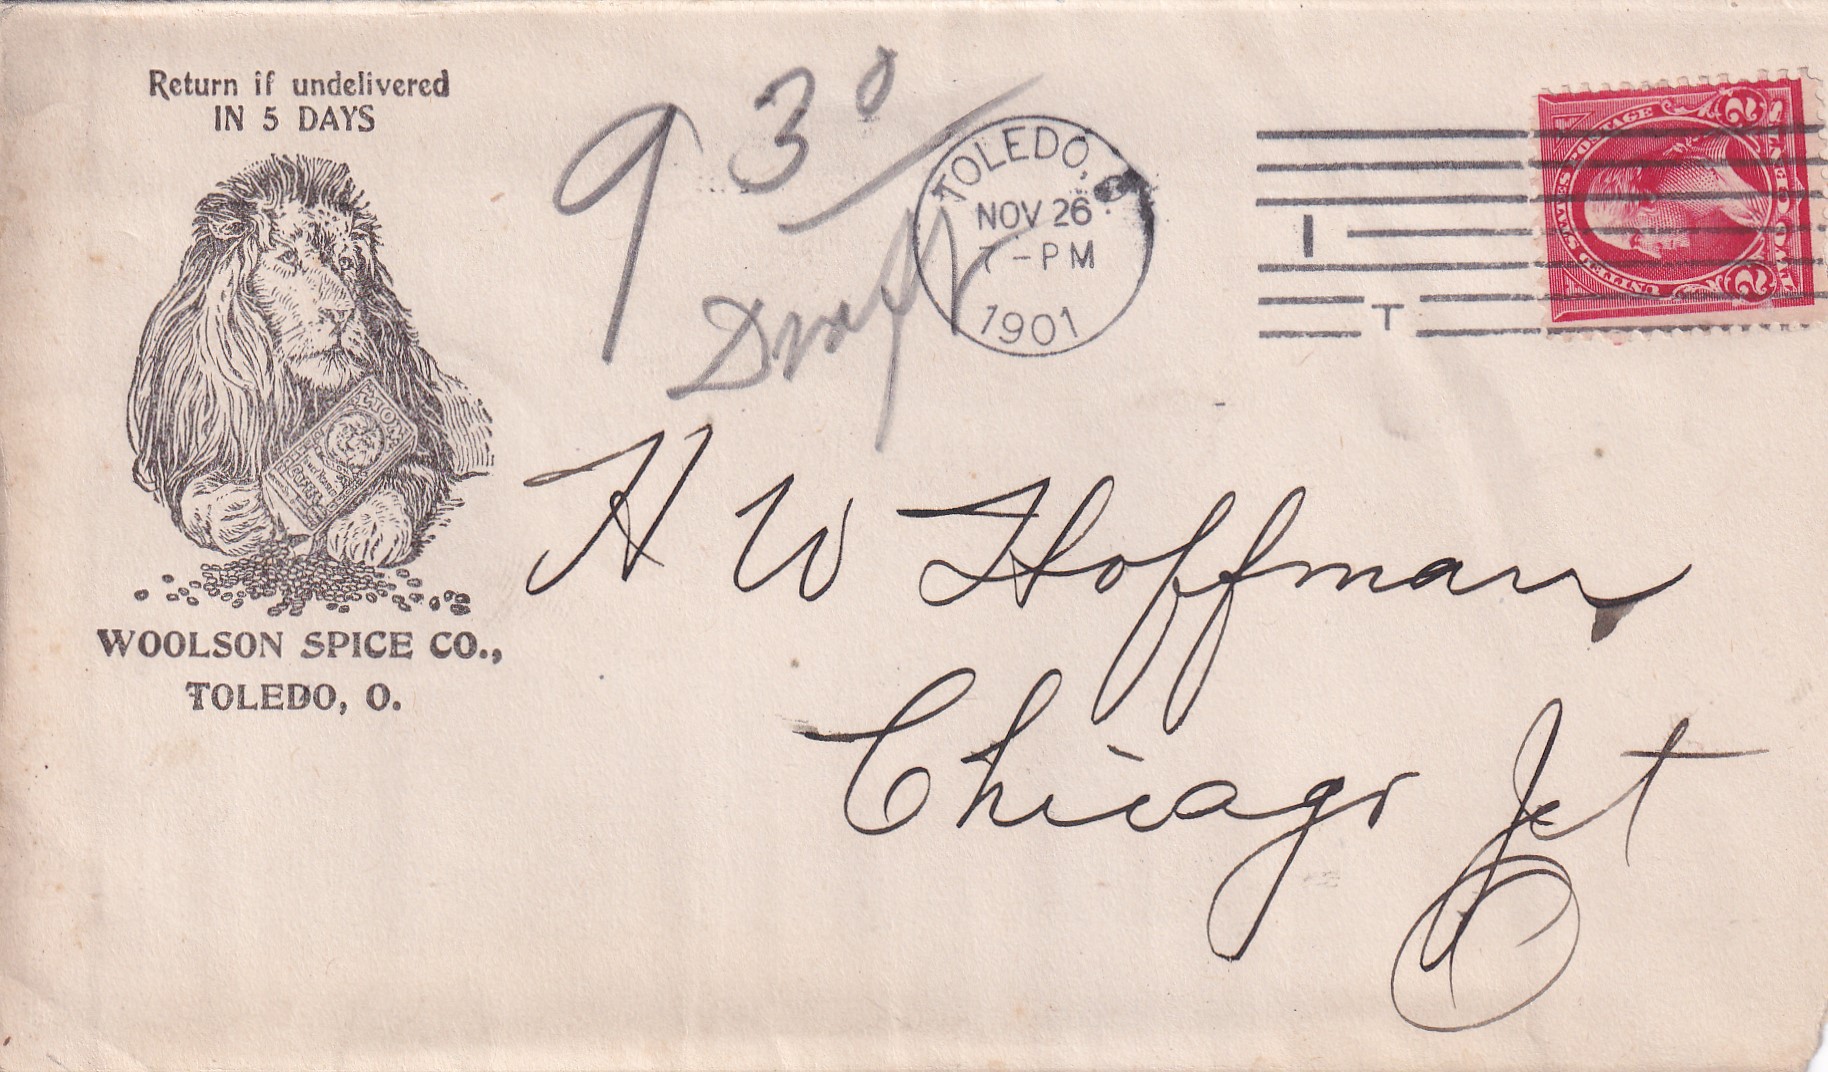 Return if undelivered
IN 5 DAYS
LION
COFFEE
WOOLSON SPICE CO.,
TOLEDO, O.
9 30
Draft
TOLEDO, O.
NOV 26
7-PM
1901
I
T
UNITED STATES POSTAGE
2 2
H W Hoffman
Chicago Jct